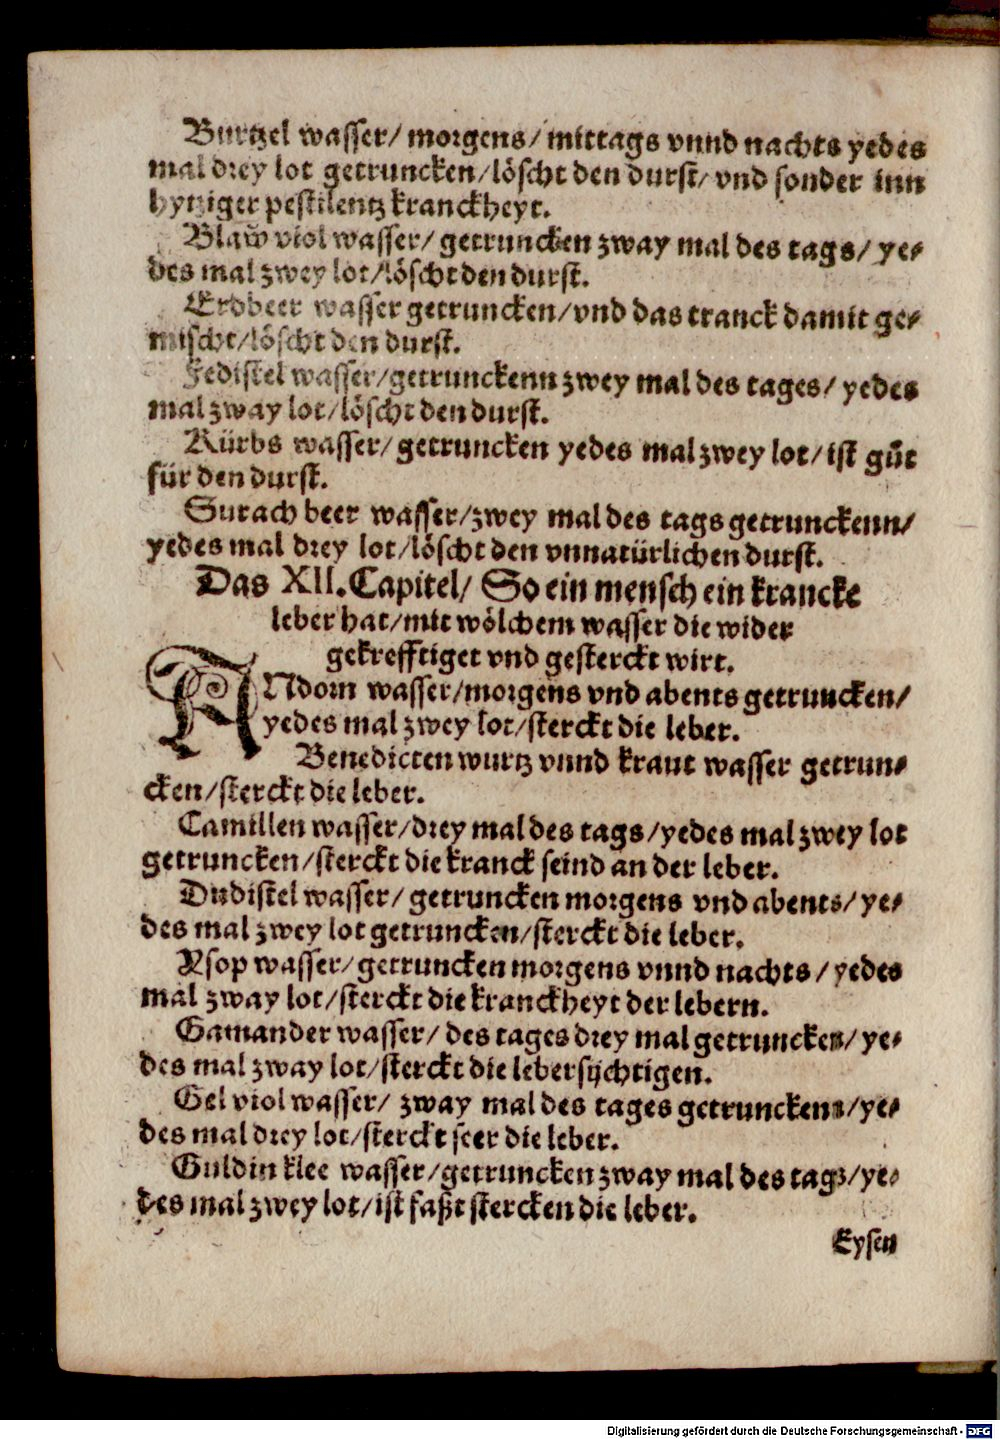 Burtzel wasser/ morgens/ mittags vnnd nachts yedes
mal drey lot getruncken/löscht den durst/ vnd sonder inn
hytziger pestilentz kranckheyt.
Blaw viol wasser/ getruncken zway mal des tags/ ye⸗
des mal zwey lot/löscht den durst.
Erdbeer wasser getruncken/vnd das tranck damit ge⸗
mischt/löscht den durst.
Fedistel wasser/getrunckenn zwey mal des tages/ yedes
mal zway lot/löscht den durst.
Kürbs wasser/ getruncken yedes mal zwey lot/ist gůt
für den durst.
Surach beer wasser/zwey mal des tags getrunckenn/
yedes mal drey lot/löscht den vnnatürlichen durst.
Das XII. Capitel/ So ein mensch ein krancke
leber hat/mit wölchem wasser die wider
gekrefftiget vnd gesterckt wirt.
ANdorn wasser/morgens vnd abents getruncken/
yedes mal zwey lot/sterckt die leber.
Benedicten wurtz vnnd kraut wasser getrun⸗
cken/sterckt die leber.
Camillen wasser/drey mal des tags/yedes mal zwey lot
getruncken/sterckt die kranck seind an der leber.
Dudistel wasser/ getruncken morgens vnd abents/ ye⸗
des mal zwey lot getruncken/sterckt die leber.
Ysop wasser/ getruncken morgens vnnd nachts/ yedes
mal zway lot/sterckt die kranckheyt der lebern.
Gamander wasser/ des tages drey mal getruncken/ ye⸗
des mal zway lot/sterckt die lebersüchtigen.
Gel viol wasser/ zway mal des tages getruncken/ye⸗
des mal drey lot/sterckt seer die leber.
Guldin klee wasser/getruncken zway mal des tags/ye⸗
des mal zwey lot/ist faßt stercken die leber.
Eysen
Digitalisierung gefördert durch die Deutsche Forschungsgemeinschaft - DFG